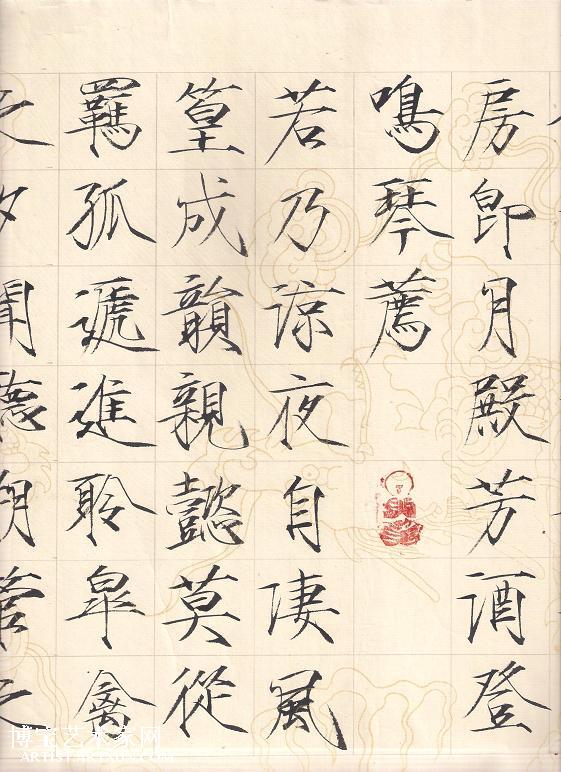 房即月殿芳酒登
鳴琴薦
若乃涼夜自凄風
篁成韻親懿莫從
羈孤遞進聆皋禽
之夕聞聽朔管之
博宝艺术家网
ARTIST.ARTXUN.COM